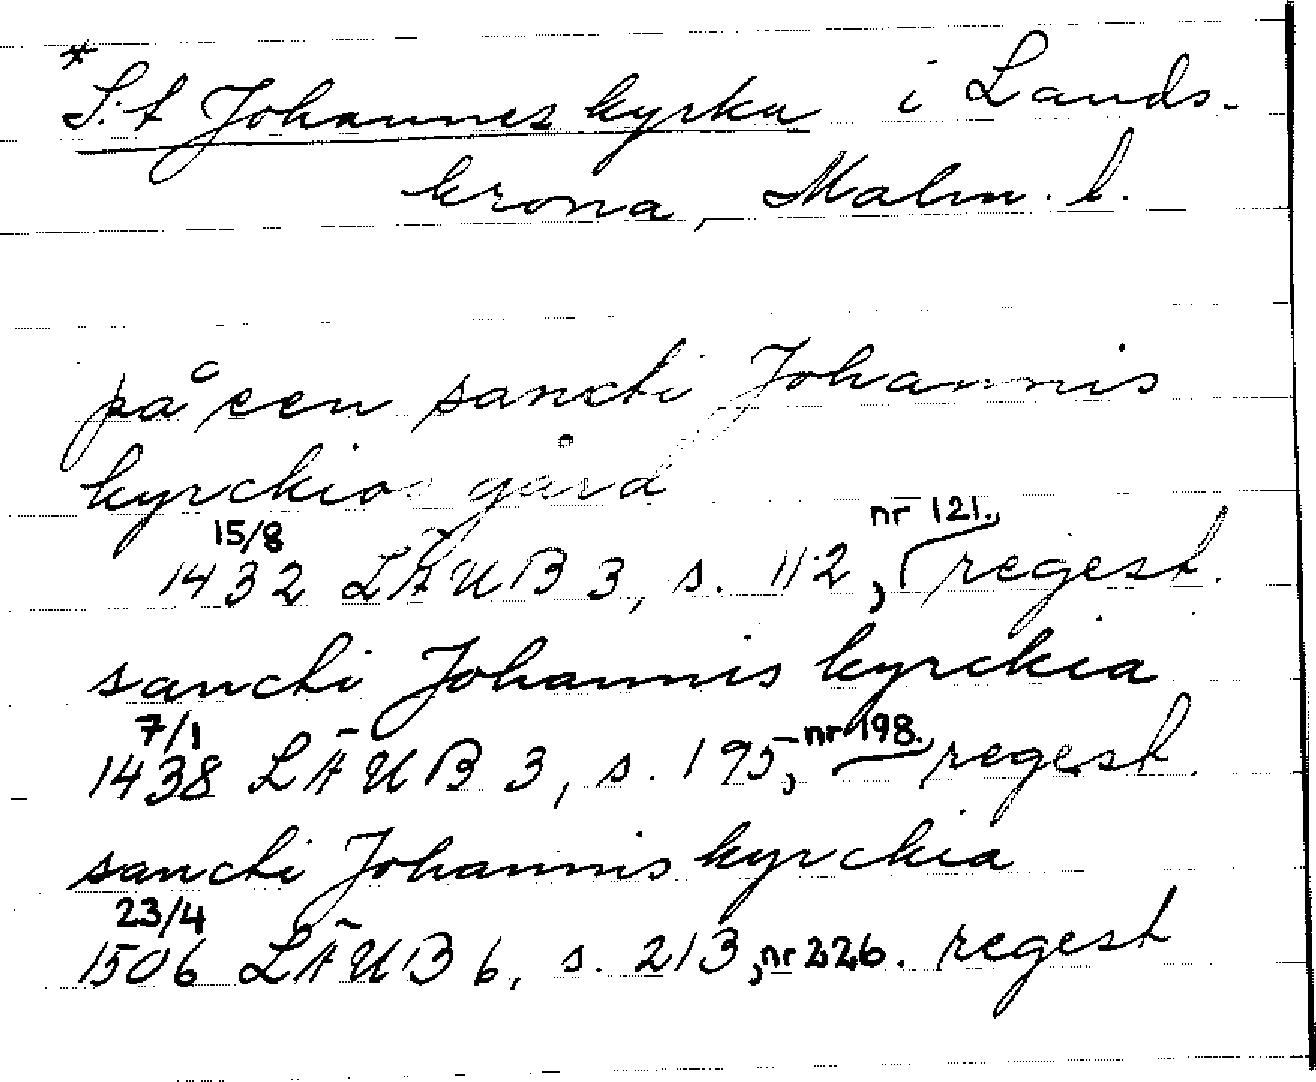 * S:t Johannes kyrka i Lands-
krona, Malm. l.
på een sancti Johannis
kyrckios gård
15/8 nr 121.,
1432 LÄUB 3, s. 112, regest.
sancti Johannis kyrckia
7/1
1438 LÄUB 3, s. 195, nr 198., regest.
sancti Johannis kyrckia
23/4
1506 LÄUB 6, s. 213, nr 226. regest